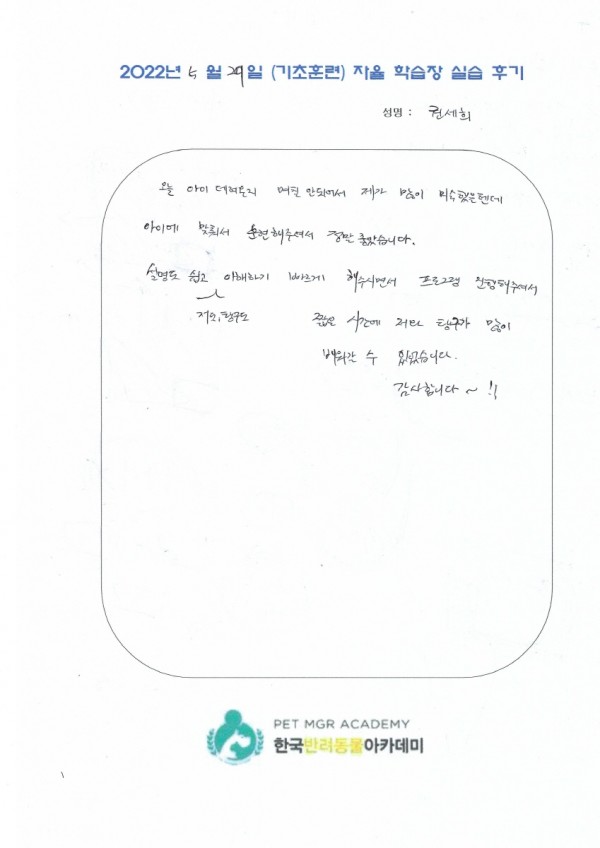 2022년 5 월 29일 (기초훈련) 자율 학습장 실습 후기
성명 : 권세희
오늘 아이 데려온지 며칠 안되어서 제가 많이 미숙했을텐데
아이에 맞춰서 훈련해주셔서 정말 좋았습니다.
설명도 쉽고 이해하기 빠르게 해주시면서 프로그램 진행해주셔서
저도, 탱구도 짧은 시간에 저와 탱구가 많이
배워간 수 있었습니다.
감사합니다 ~ !!
PET MGR ACADEMY
한국반려동물아카데미